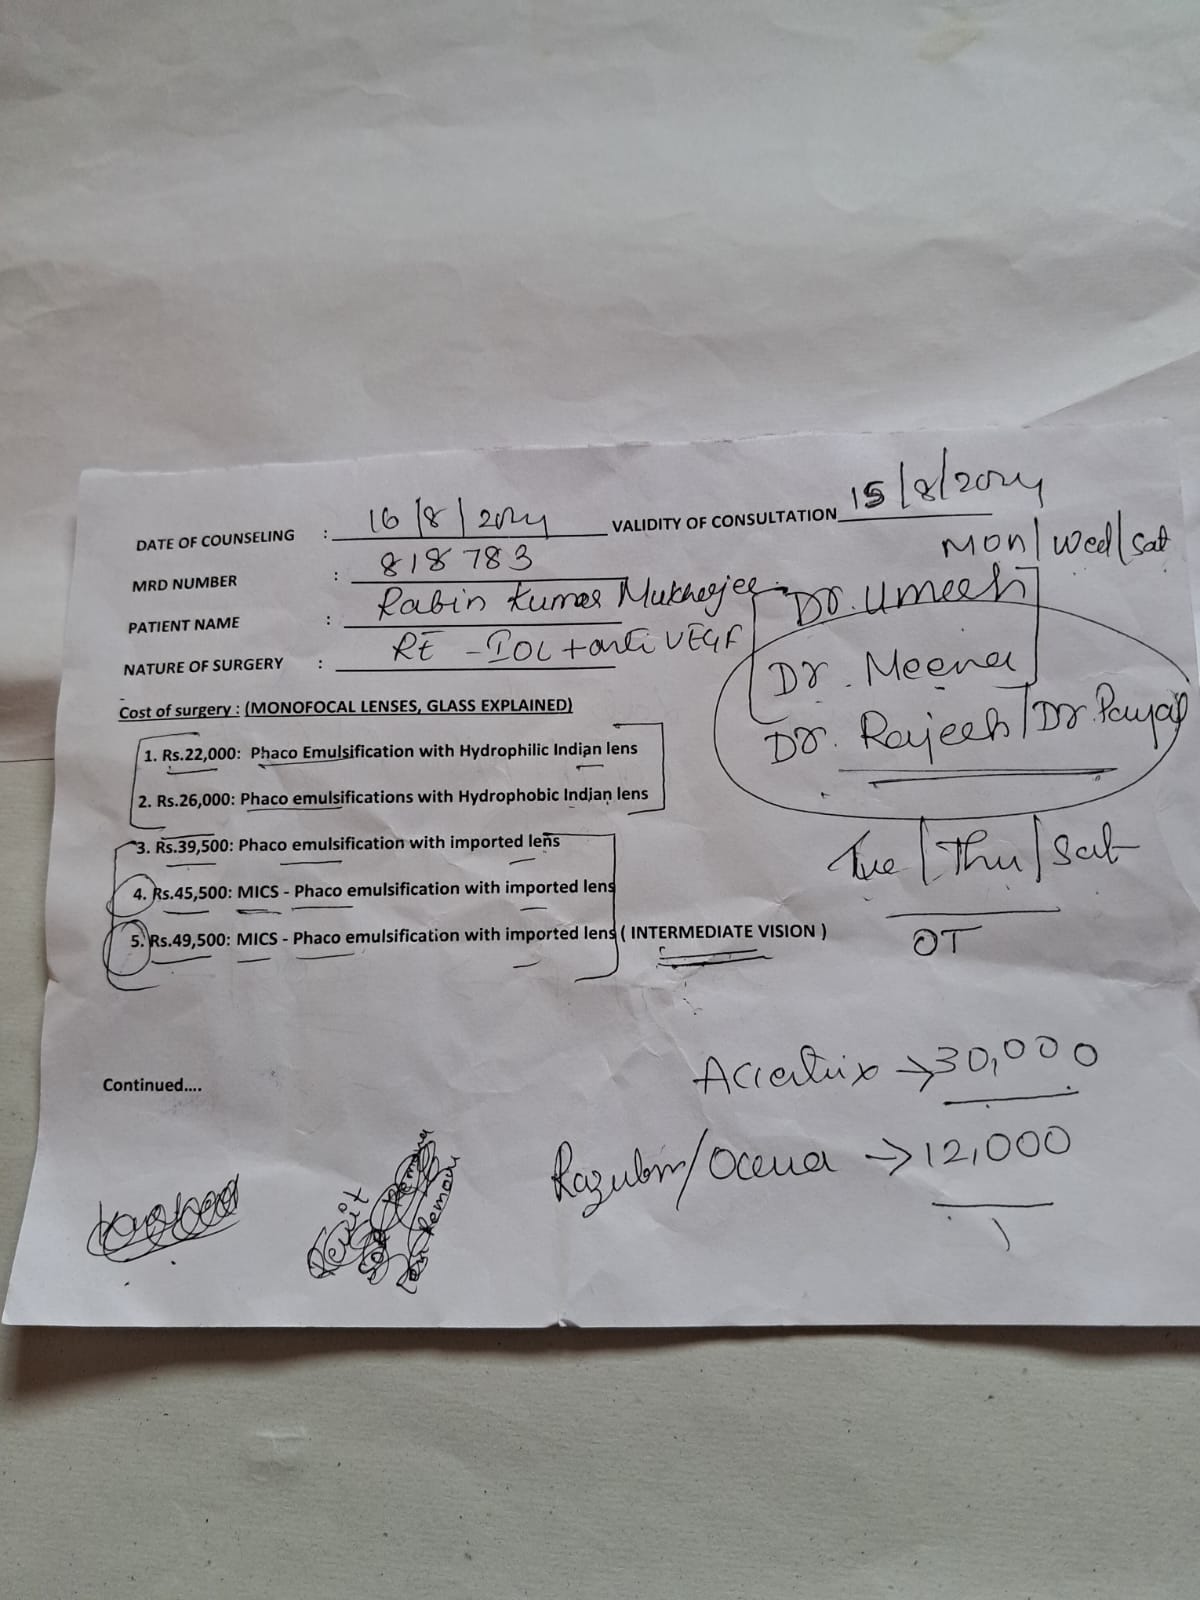 DATE OF COUNSELING : 16/8/2024 VALIDITY OF CONSULTATION 15/8/2024
MRD NUMBER : 818783
PATIENT NAME : Rabin Kumar Mukherjee
NATURE OF SURGERY : RE - IOL + anti VEGF
Mon/Wed/Sat
Dr. Umeesh
Dr. Meena
Dr. Rajeesh/Dr. Payal
Cost of surgery : (MONOFOCAL LENSES, GLASS EXPLAINED)
1. Rs.22,000: Phaco Emulsification with Hydrophilic Indian lens
2. Rs.26,000: Phaco emulsifications with Hydrophobic Indian lens
3. Rs.39,500: Phaco emulsification with imported lens
4. Rs.45,500: MICS - Phaco emulsification with imported lens
5. Rs.49,500: MICS - Phaco emulsification with imported lens ( INTERMEDIATE VISION )
Tue/Thu/Sat
OT
→ 30,000
Continued....
→ 12,000